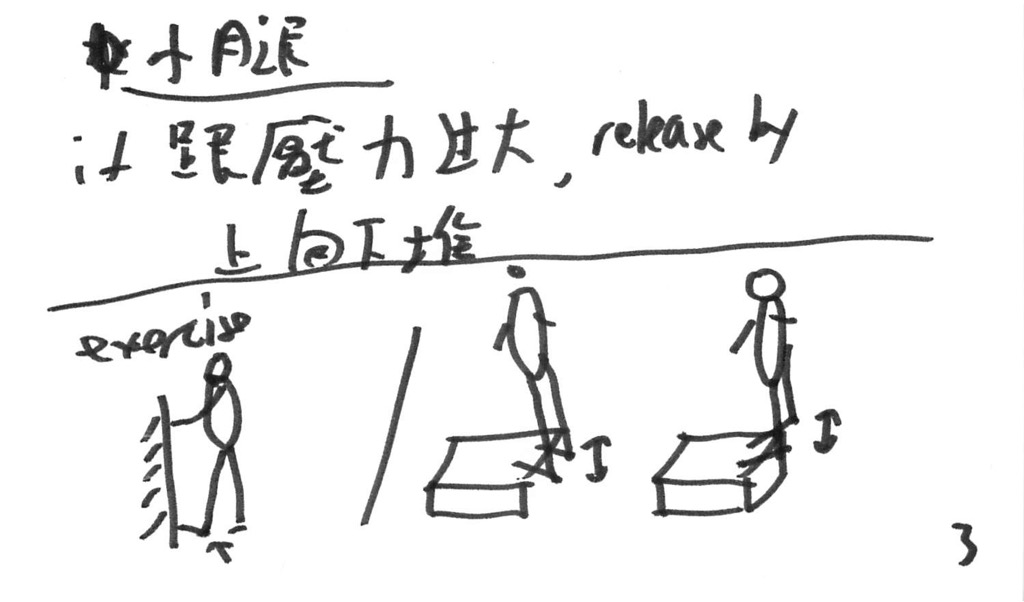 小月退
if 跟壓力过大, release by
上向下推
exercise
3